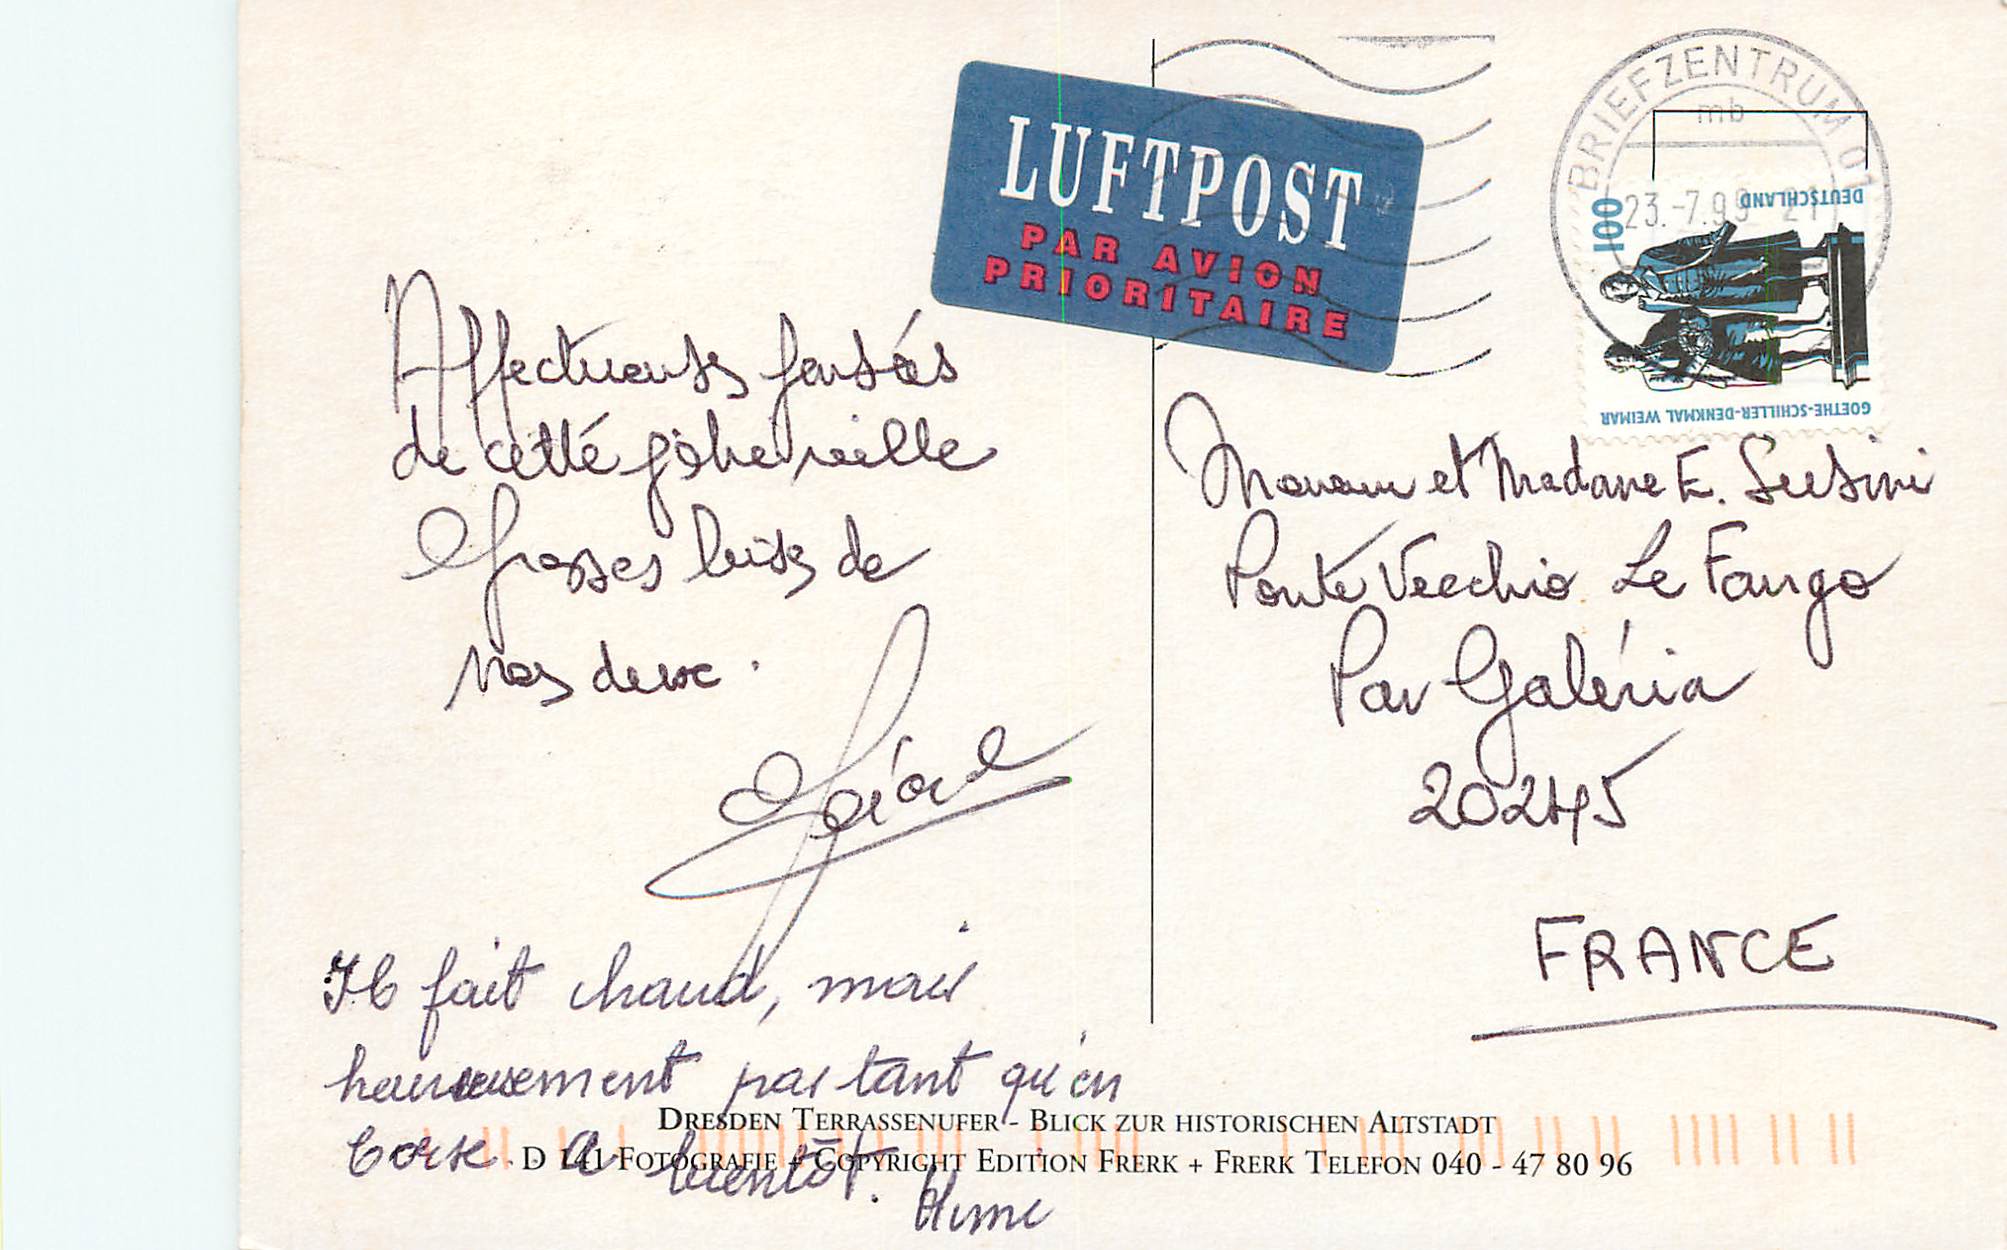 LUFTPOST
PAR AVION
PRIORITAIRE
BRIEFZENTRUM 01
mb
23.-7.99-21
DEUTSCHLAND
100
GOETHE-SCHILLER-DENKMAL WEIMAR
Affectueuses pensées
de cette jolie ville
Grosses bises de
nos deux.
Il fait chaud, mais
heureusement pas tant qu'en
Corse. A bientôt.
Monsieur et Madame E. Susini
Ponte Vecchio Le Fango
Par Galéria
20245
FRANCE
DRESDEN TERRASSENUFER - BLICK ZUR HISTORISCHEN ALTSTADT
D 141 FOTOGRAFIE + COPYRIGHT EDITION FRERK + FRERK TELEFON 040 - 47 80 96